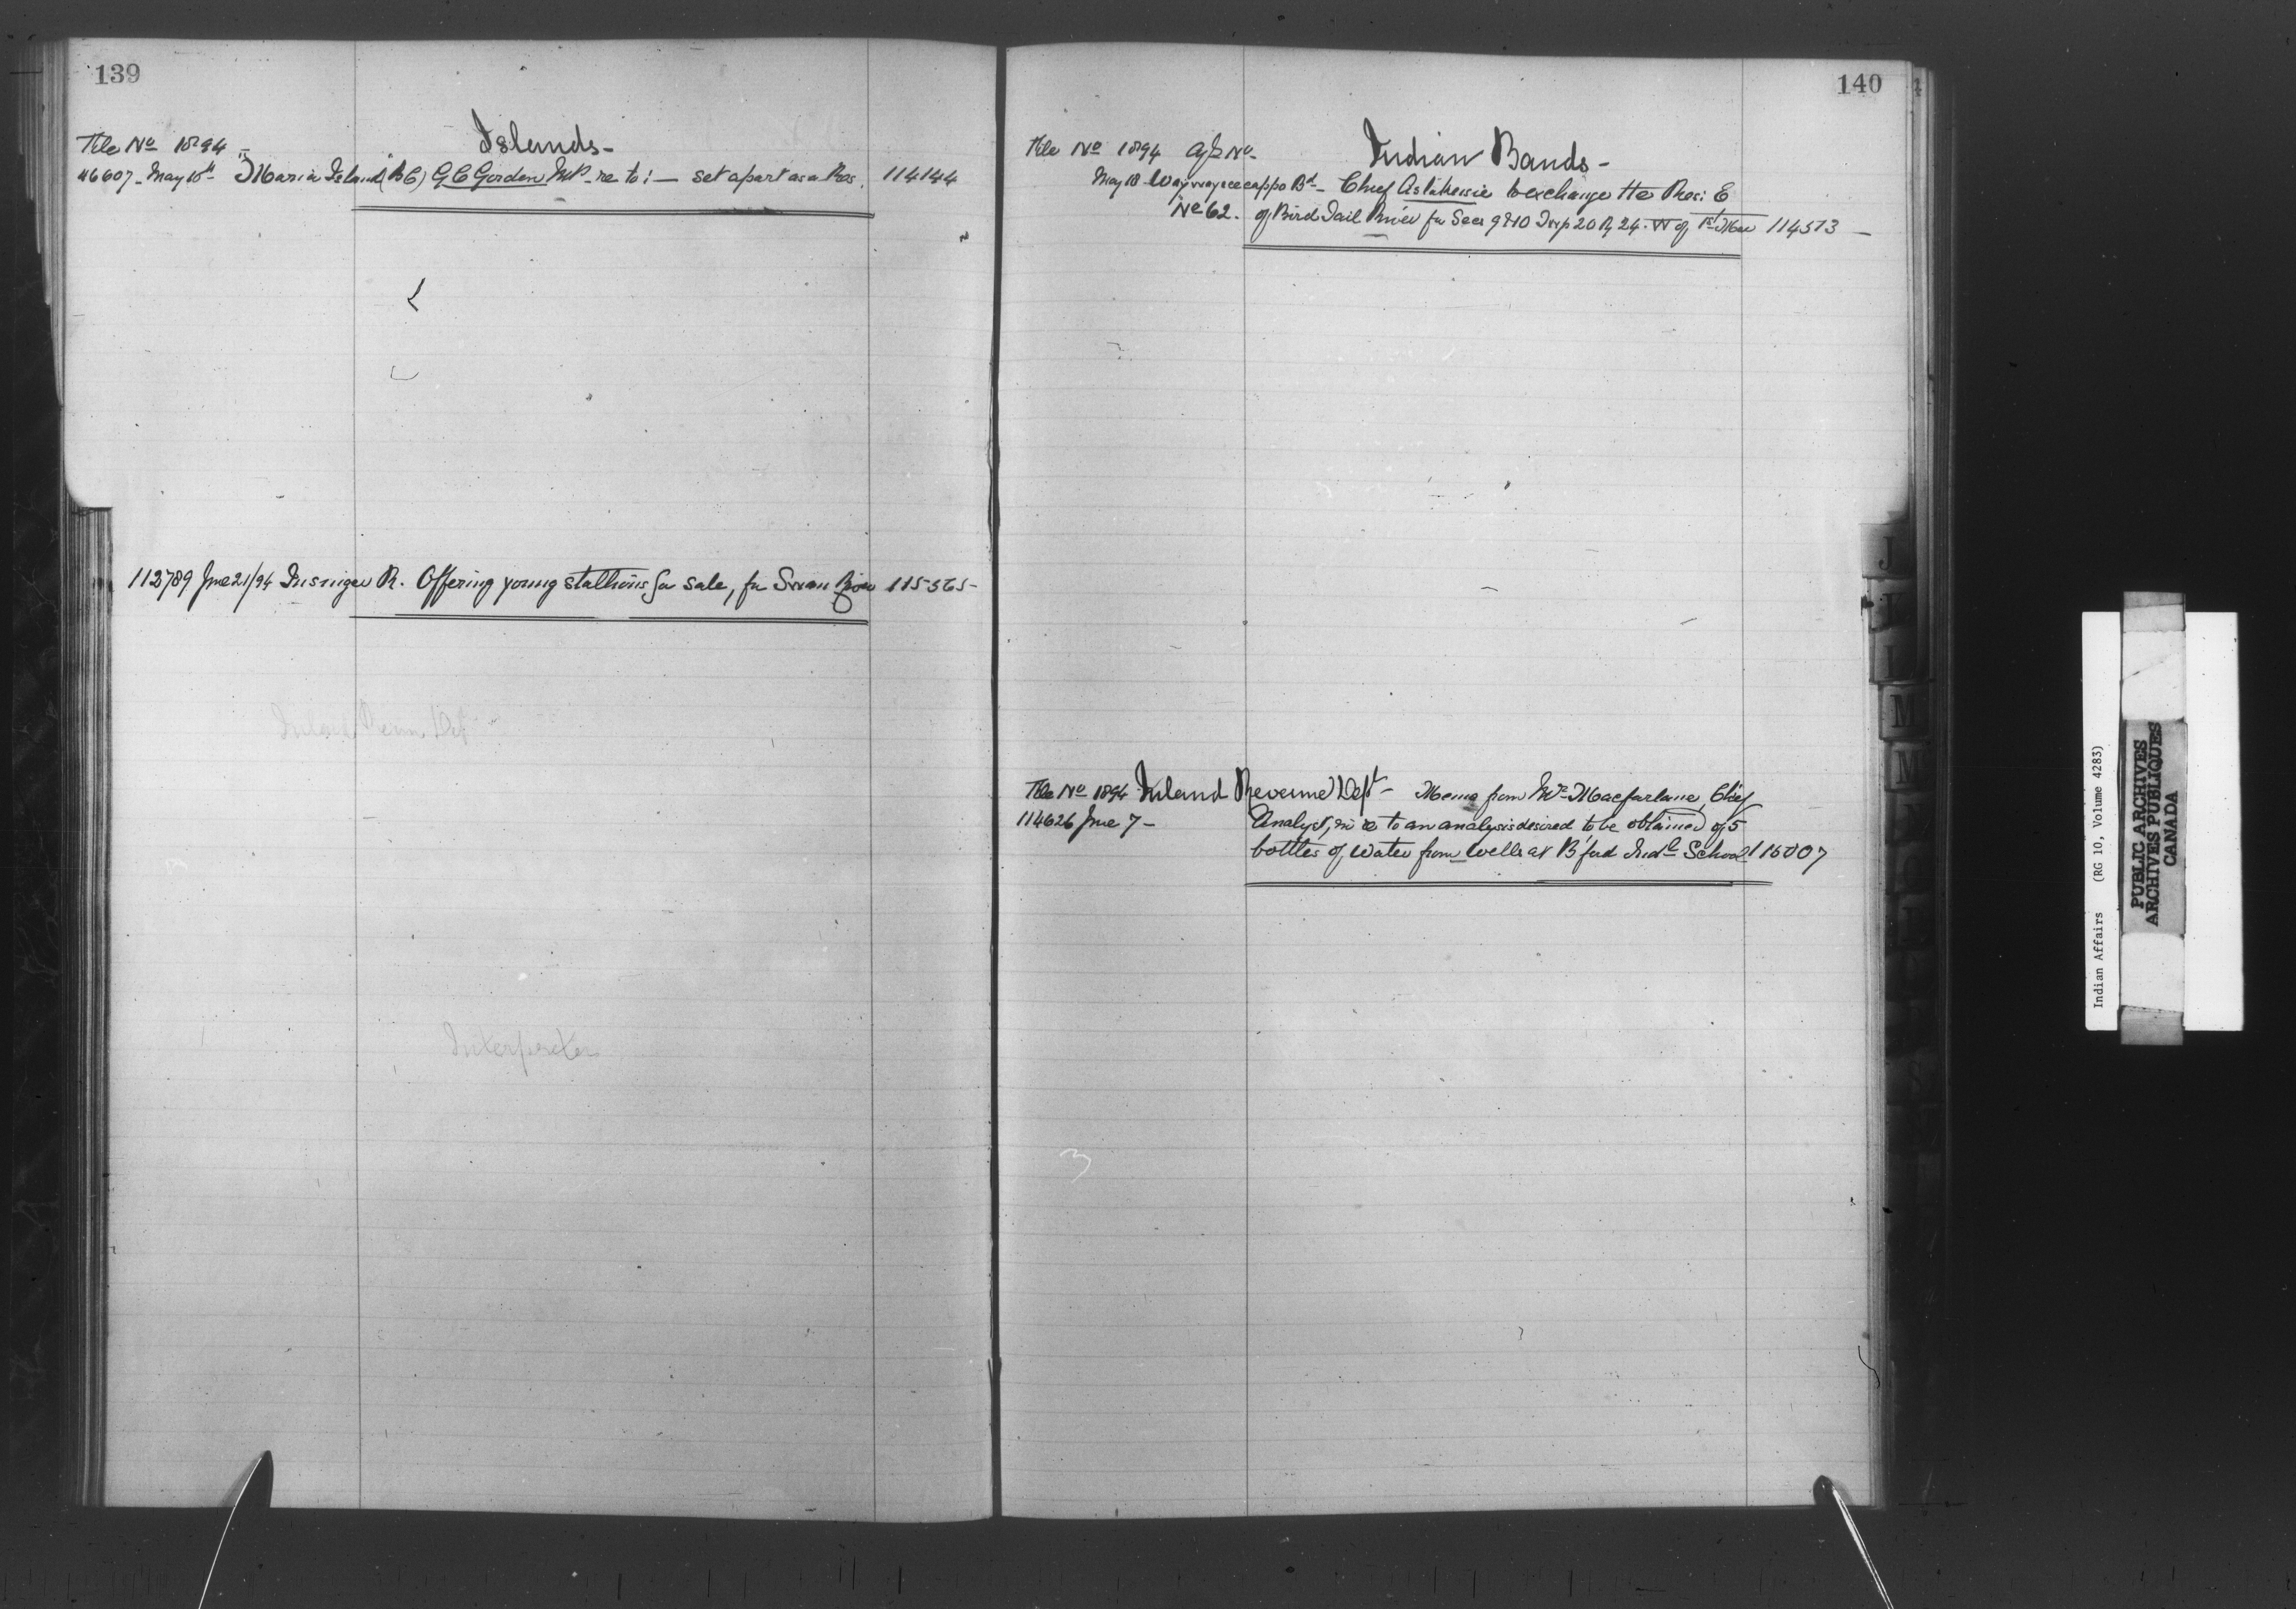 139
Islands -
File No 1894 -
46607 - May 18th "Maria Island" (B C) G C Gordon M.P. - re to: - set apart as a Res. 114144
112789 June 21/94 Insinger R. Offering young stallions for sale, for Swan River 115365 -
Inland Reven Dept
Interpreter
140
File No 1894 Agy No -
Indian Bands -
May 18 Waywayseecappo Bd - Chief to exchange the Res: E
No 62. of Bird Tail River for Secs 9 & 10 Twp 20 R 24 W of 1st Mer 114573 -
File No 1894 Inland Revenue Dept - Memo from Mr Macfarlane, Chief
114626 June 7 - Analyst, in re to an analysis desired to be obtained of 5
bottles of water from wells at B'ford Indl School 115007
J
L
M
M
Indian Affairs (RG 10, Volume 4283)
PUBLIC ARCHIVES
ARCHIVES PUBLIQUES
CANADA